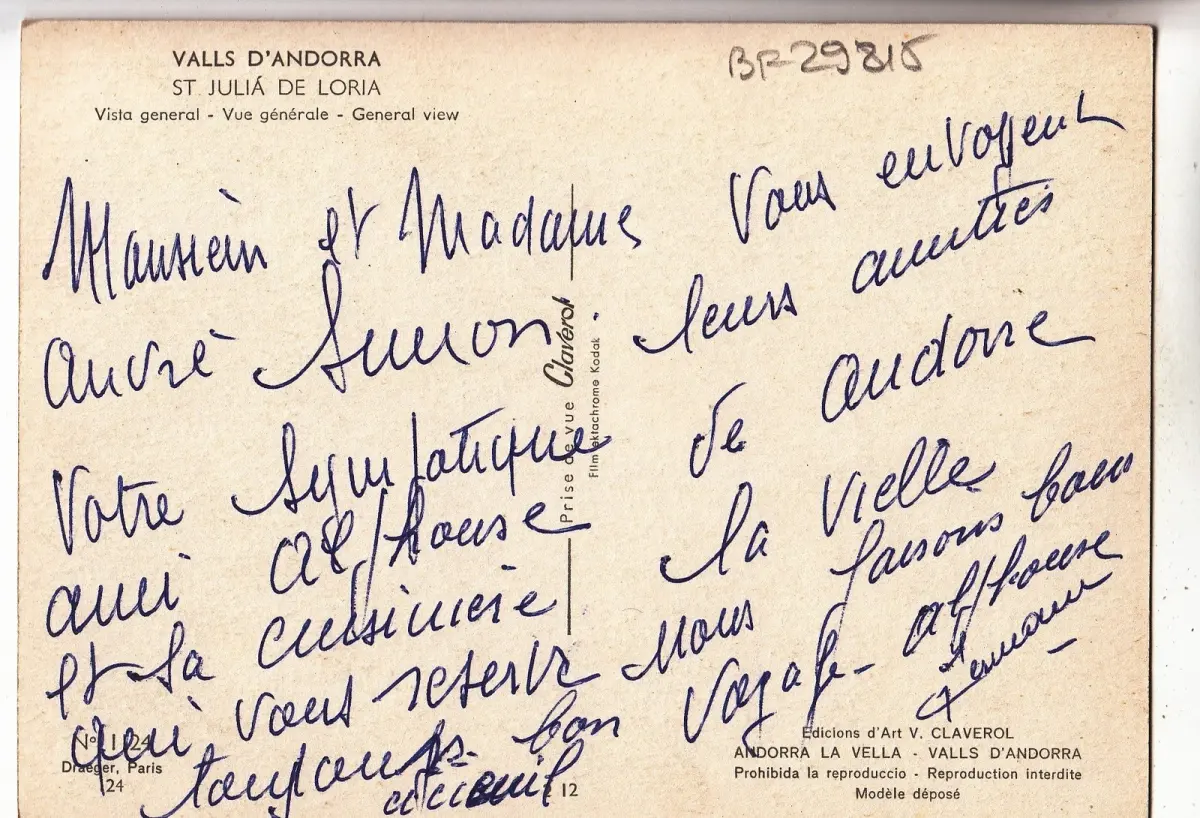 VALLS D'ANDORRA
ST. JULIÁ DE LORIA
Vista general - Vue générale - General view
BF-29815
Monsieur et Madame
André Simon.
Votre sympatique
ami Alphonse
et sa cuisinière
qui vous reserve
toujours bon
accueil
Vous envoyent
leurs amitiés
de andorre
la vielle
Nous faisons bon
voyage - alphonse
Prise de vue Claverol
Film ektachrome Kodak
Nº 1124
Draeger, Paris
24
12
Edicions d'Art V. CLAVEROL
ANDORRA LA VELLA - VALLS D'ANDORRA
Prohibida la reproduccio - Reproduction interdite
Modèle déposé